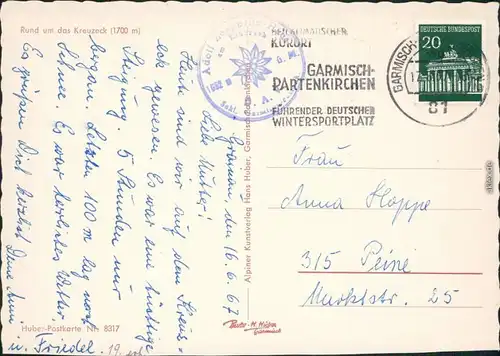 Rund um das Kreuzeck (1700 m)
Grainau, den 16.6.67
Liebe Mutter!
Heute sind wir auf dem Kreuz-
eck gewesen. Es war eine tüchtige
Steigung. 5 Stunden nur
bergan. Letzten 100 m lag noch
Schnee. Es war herrliches Wetter.
Es grüßen Dich herzlichst Deine Anni
u. Friedel.
Huber-Postkarte Nr. 8317
Alpiner Kunstverlag Hans Huber, Garmisch-Partenkirchen
HEILKLIMATISCHER
KURORT
GARMISCH-
PARTENKIRCHEN
FÜHRENDER DEUTSCHER
WINTERSPORTPLATZ
GARMISCH
81
DEUTSCHE BUNDESPOST
20
Frau
Anna Hoppe
315 Peine
Marktstr. 25